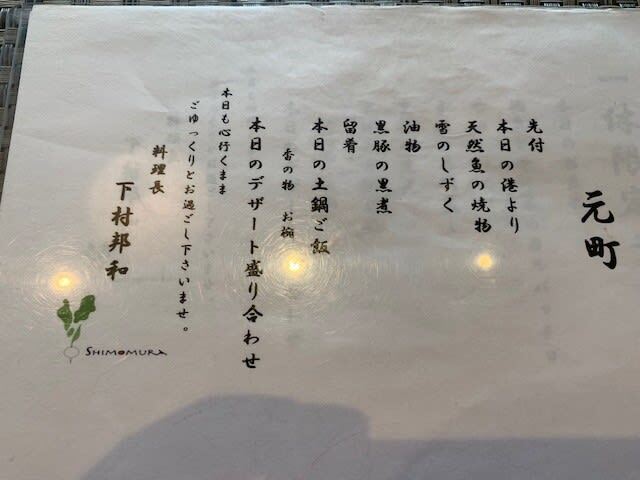 元町
先付
本日の港より
天然魚の焼物
雪のしずく
油物
黒豚の黒煮
留肴
本日の土鍋ご飯
香の物 お椀
本日のデザート盛り合わせ
本日も心行くまま
ごゆっくりとお過ごし下さいませ。
料理長
下村邦和
SHIMOMURA